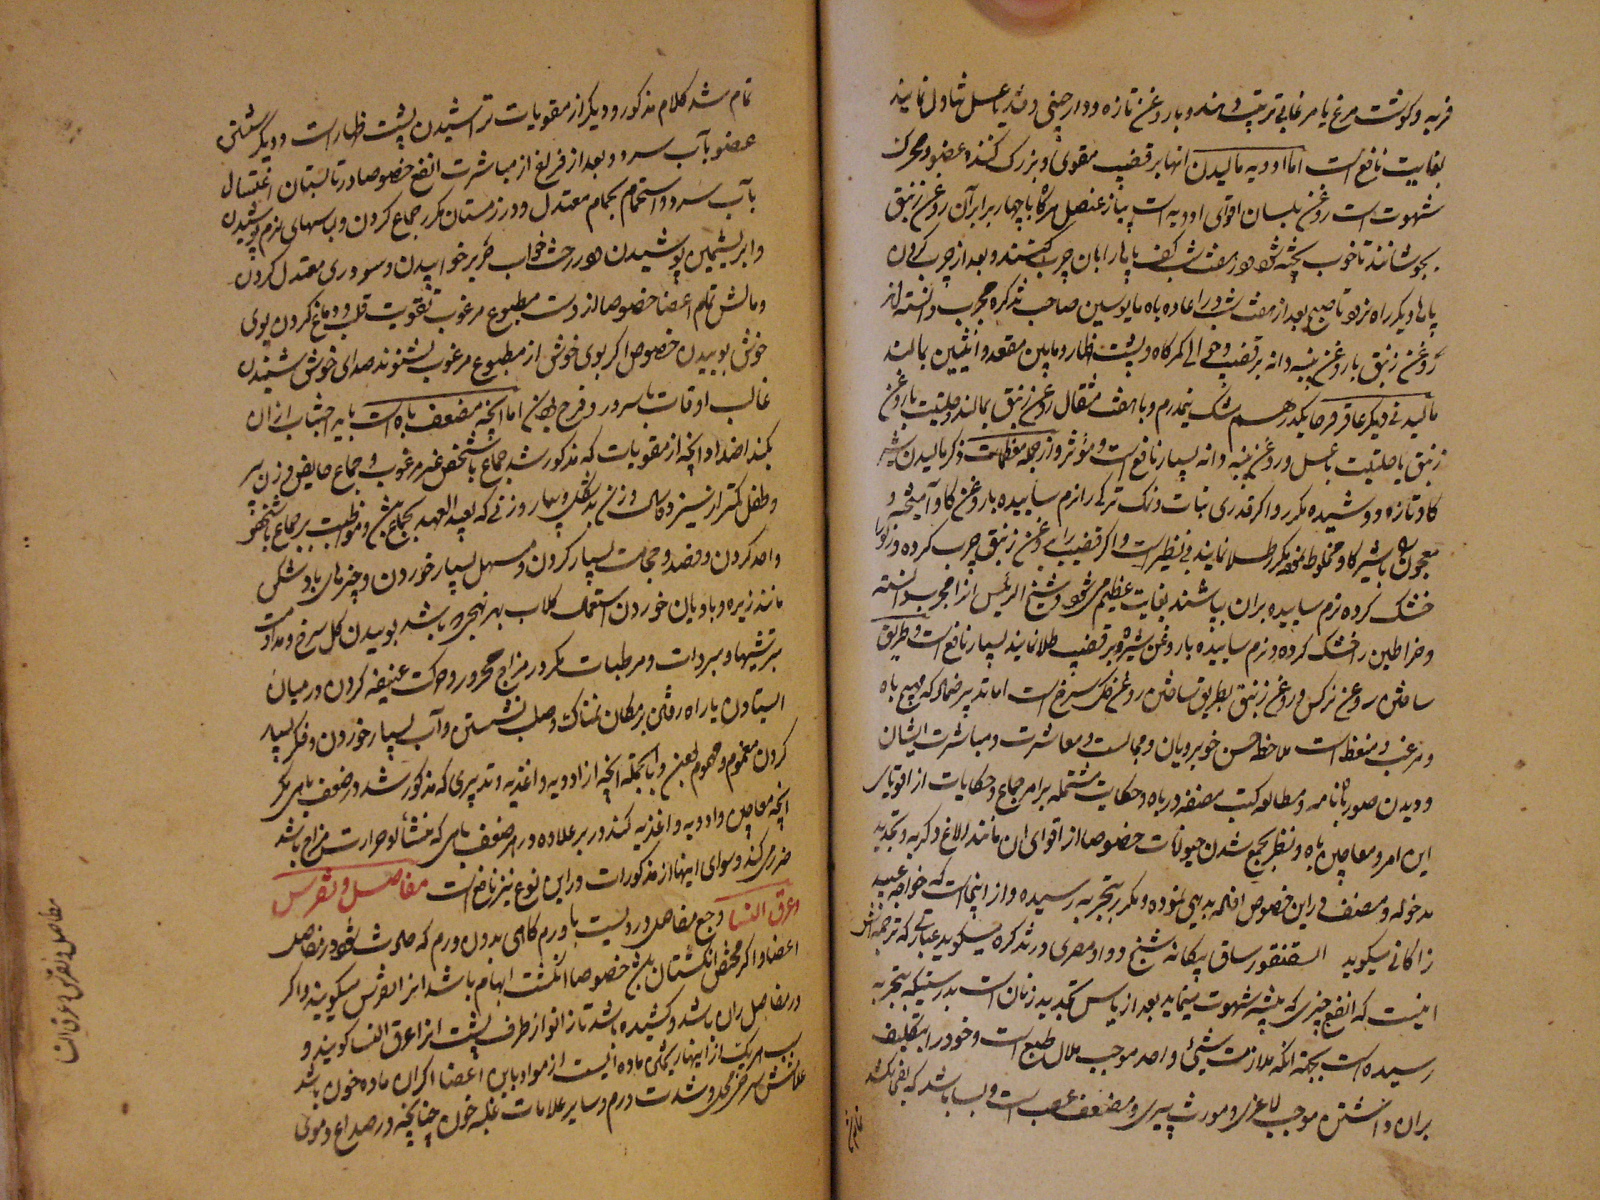 فربه و گوشت مرغ یا مرغابی ترتیب دهند و با روغن تازه و دارچینی و قند یا عسل تناول نمایند
بغایت نافع است اما ادویه مالیدن انها بر قضیب مقوی و بزرگ کننده عضو و محرک
شهوت است روغن بلسان اقوای ادویه است پیاز عنصل هرگاه با چهار برابر آن روغن زنبق
بجوشانند تا خوب پخته شود و در هفت شب کف پا را بان چرب کنند و بعد از چرب کردن
پا دیگر راه نرود تا صبح بعد از هفت شب در اعاده باه مایوسین صاحب تذکره مجرب دانسته اند
روغن زنبق با روغن پنبه دانه بر قضیب و حوالی کمرگاه و پشت ظهار و مابین مقعد و انثیین بمالند
مالیدنی دیگر عاقرقرحا یکدرهم مشک نیمدرم و با هفت مثقال روغن زنبق بمالند و حلتیت با روغن
زنبق یا حلتیت با عسل و روغن پنبه دانه بسیار نافع است و مؤثر و از جمله معظمات ذکر مالیدن شیر
گاو تازه دوشیده مکرر و اگر قدری نبات و نمک ترکی را نرم ساییده با روغن گاو آمیخته و
معجون با شیر گاو مخلوط نموده مکرر طلا نمایند بی نظیر است و اگر قضیب را بروغن زنبق چرب کرده و زلو را
خشک کرده نرم ساییده بران بپاشند بغایت عظیم می شود و شیخ الرئیس انرا مجرب دانسته
و خراطین را خشک کرده و نرم ساییده با روغن شیره بر قضیب طلا نمایند بسیار نافع است و طریق
ساختن روغن نرگس و روغن زنبق بطریق ساختن روغن گل سرخ است اما تدبیر ضمادکه مهیج باه
و مرغب و منعظ است ملاحظه حسن خوبرویان و مجالست و معاشرت و مباشرت ایشان
و دیدن صور باه نامه و مطالعه کتب مصنفه در باه و حکایت مشتمله بر امر جماع و حکایات از اقویای
این امر و معاجین باه و نظر بجمع شدن حیوانات خصوصا از اقوای ان مانند الاغ و گربه و تجدید
مدخوله و مصنف در این خصوص افلمه بدیهی نموده و مکرر بتجربه رسیده و از اینجاست که خواجه عبید
زاکانی میگوید السقنقور ساق بیگانه شیخ داود مصری در تذکره میگوید عبارتی که ترجمه اش
اینست که انفع چیزی که تنبیه شهوت مینماید بعد از یاس تجدید زنان است بدرستیکه بتجربه
رسیده است بجهة انکه ملازمت شیئی واحد موجب ملال طبع است و خود را بتکلیف
بران داشتن موجب لاغری و مورث پیری و مضعف عصب است و بسا باشد که بغی بکشد
تمام شد کلام مذکور و دیگر از مقویات تراشیدن پشت ظهار است و دیگر شستن
عضو بآب سرد و بعد از فراغ از مباشرت انفع خصوصا در تابستان اغتسال
بآب سرد و استحمام بحمام معتدل و در زمستان مکرر جماع کردن و لباسهای نرم پوشیدن
و ابریشمین پوشیدن و در رخت خواب حریر خوابیدن و سواری معتدل کردن
و مالش تمام اعضا خصوصا از دست مطبوع مرغوب تقویت قلب و دماغ کردن بوی
خوش بوییدن خصوص اگر بوی خوش از مطبوع مرغوب بشنوند صدای خوش شنیدن
غالب اوقات با سرور و فرح بودن اما انچه مضعف باه است باید اجتناب از ان
بکند اضداد انچه از مقویات که مذکور شد جماع با شخص غیر مرغوب و جماع حایض و زن پیر
و طفل کمتر از سیزده سال و زن بدشکل و بیمار و زنی که بعید العهد بجماع باشد و مواظبت بر جماع با شخص
واحد کردن و فصد و حجامت بسیار کردن و مسهل بسیار خوردن و چیزهای بادشکن
مانند زیره و بادیان خوردن استعمال گلاب بهر نهجی که باشد بوییدن گل سرخ و مداومت
بترشیها و مبردات و مرطبات مکرر در مزاج محرور و حرکت عنیفه کردن در میان
ایستادن یا راه رفتن بر مکان نمناک و صلب نشستن و آب بسیار خوردن و فکر بسیار
کردن مغموم و مهموم بودن و بالجمله انچه از ادویه و اغذیه و تدبیری که مذکور شد در ضعف باهی مگر
انچه معاجین و ادویه و اغذیه کند در بر علاوه در امر ضعف باهی که منشأ او حرارت مزاج باشد
ضرر می کند و سوای اینها از مذکورات در این نوع نیز نافع است مفاصل و نقرس
و عرق النسا وجع مفاصل دردیست با ورم گاهی بدون ورم که حادث شود در مفاصل
اعضا و اگر مختص انگشتان باشد خصوصا انگشت ابهام باشد انرا نقرس میگویند و اگر
در مفاصل ران باشد و کشیده باشد تا زانو از طرف پشت انرا عرق النسا گویند و
سبب هر یک از اینها ریختن ماده ایست از مواد باین اعضا اگر ان ماده خون باشد
علامتش سرخی محل و شدت درم و سایر علامات غلبه خون چنانچه در صداع دموی
مفاصل و نقرس و عرق النسا